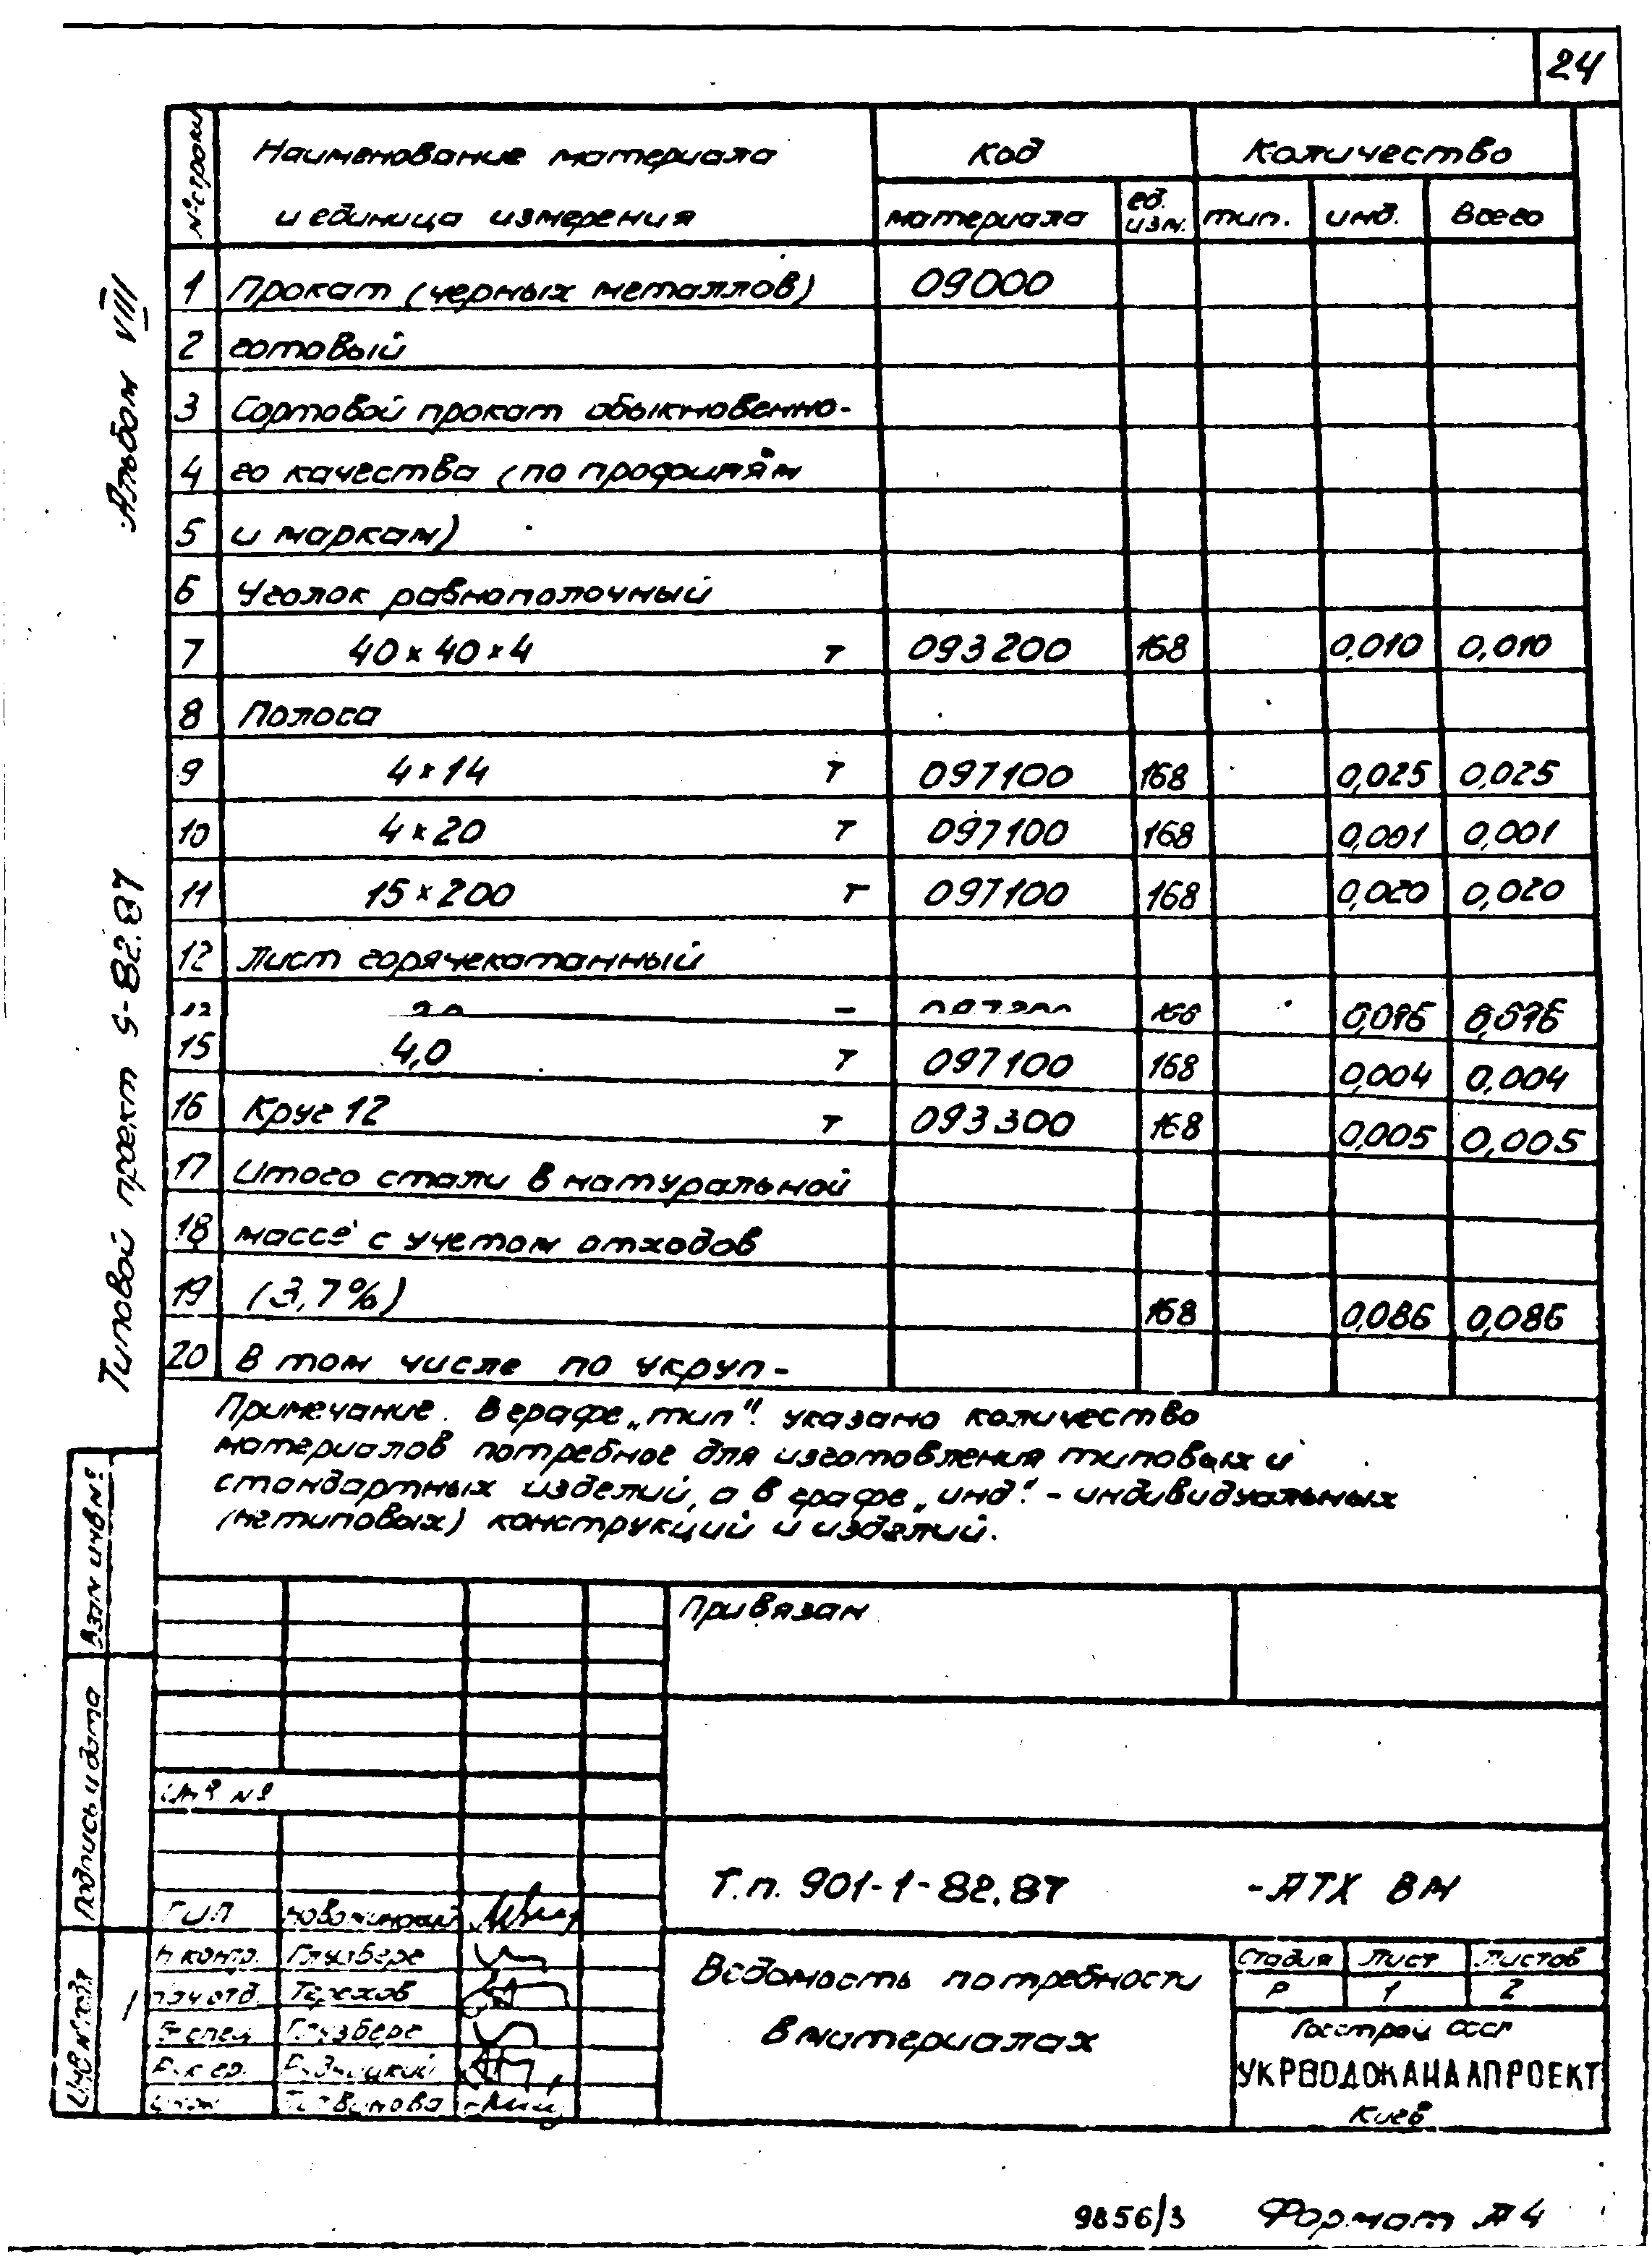 24
№ строки Наименование материала Код Количество
и единица измерения материала ед. изм. тип. инд. Всего
1 Прокат (черных металлов) 09000
2 готовый
3 Сортовой прокат обыкновенно-
4 го качества (по профилям
5 и маркам)
6 Уголок равнополочный
7 40×40×4 т 093200 168 0,010 0,010
8 Полоса
9 4×14 т 097100 168 0,025 0,025
10 4×20 т 097100 168 0,001 0,001
11 15×200 т 097100 168 0,020 0,020
12 Лист горячекатанный
168
15 4,0 т 097100 168 0,004 0,004
16 Круг 12 т 093300 168 0,005 0,005
17 Итого стали в натуральной
18 массе с учетом отходов
19 (3,7%) 168 0,086 0,086
20 В том числе по укруп-
Примечание. В графе „тип". указано количество
материалов потребное для изготовления типовых и
стандартных изделий, а в графе „инд". - индивидуальных
(нетиповых) конструкций и изделий.
Альбом VIII
Типовой проект 9-82.87
Взам инв №
Подпись и дата
Инв № подл
Привязан
Инв №
Т.п. 901-1-82.87 -АТХ ВМ
ГИП
Н.контр. Глузберг
Нач отд. Терехов
Гл спец Глузберг
Рук гр.
Инж
Ведомость потребности
в материалах
Стадия Лист Листов
Р 1 2
Госстрой СССР
УКРВОДОКАНАЛПРОЕКТ
Киев
9856/3 Формат А4